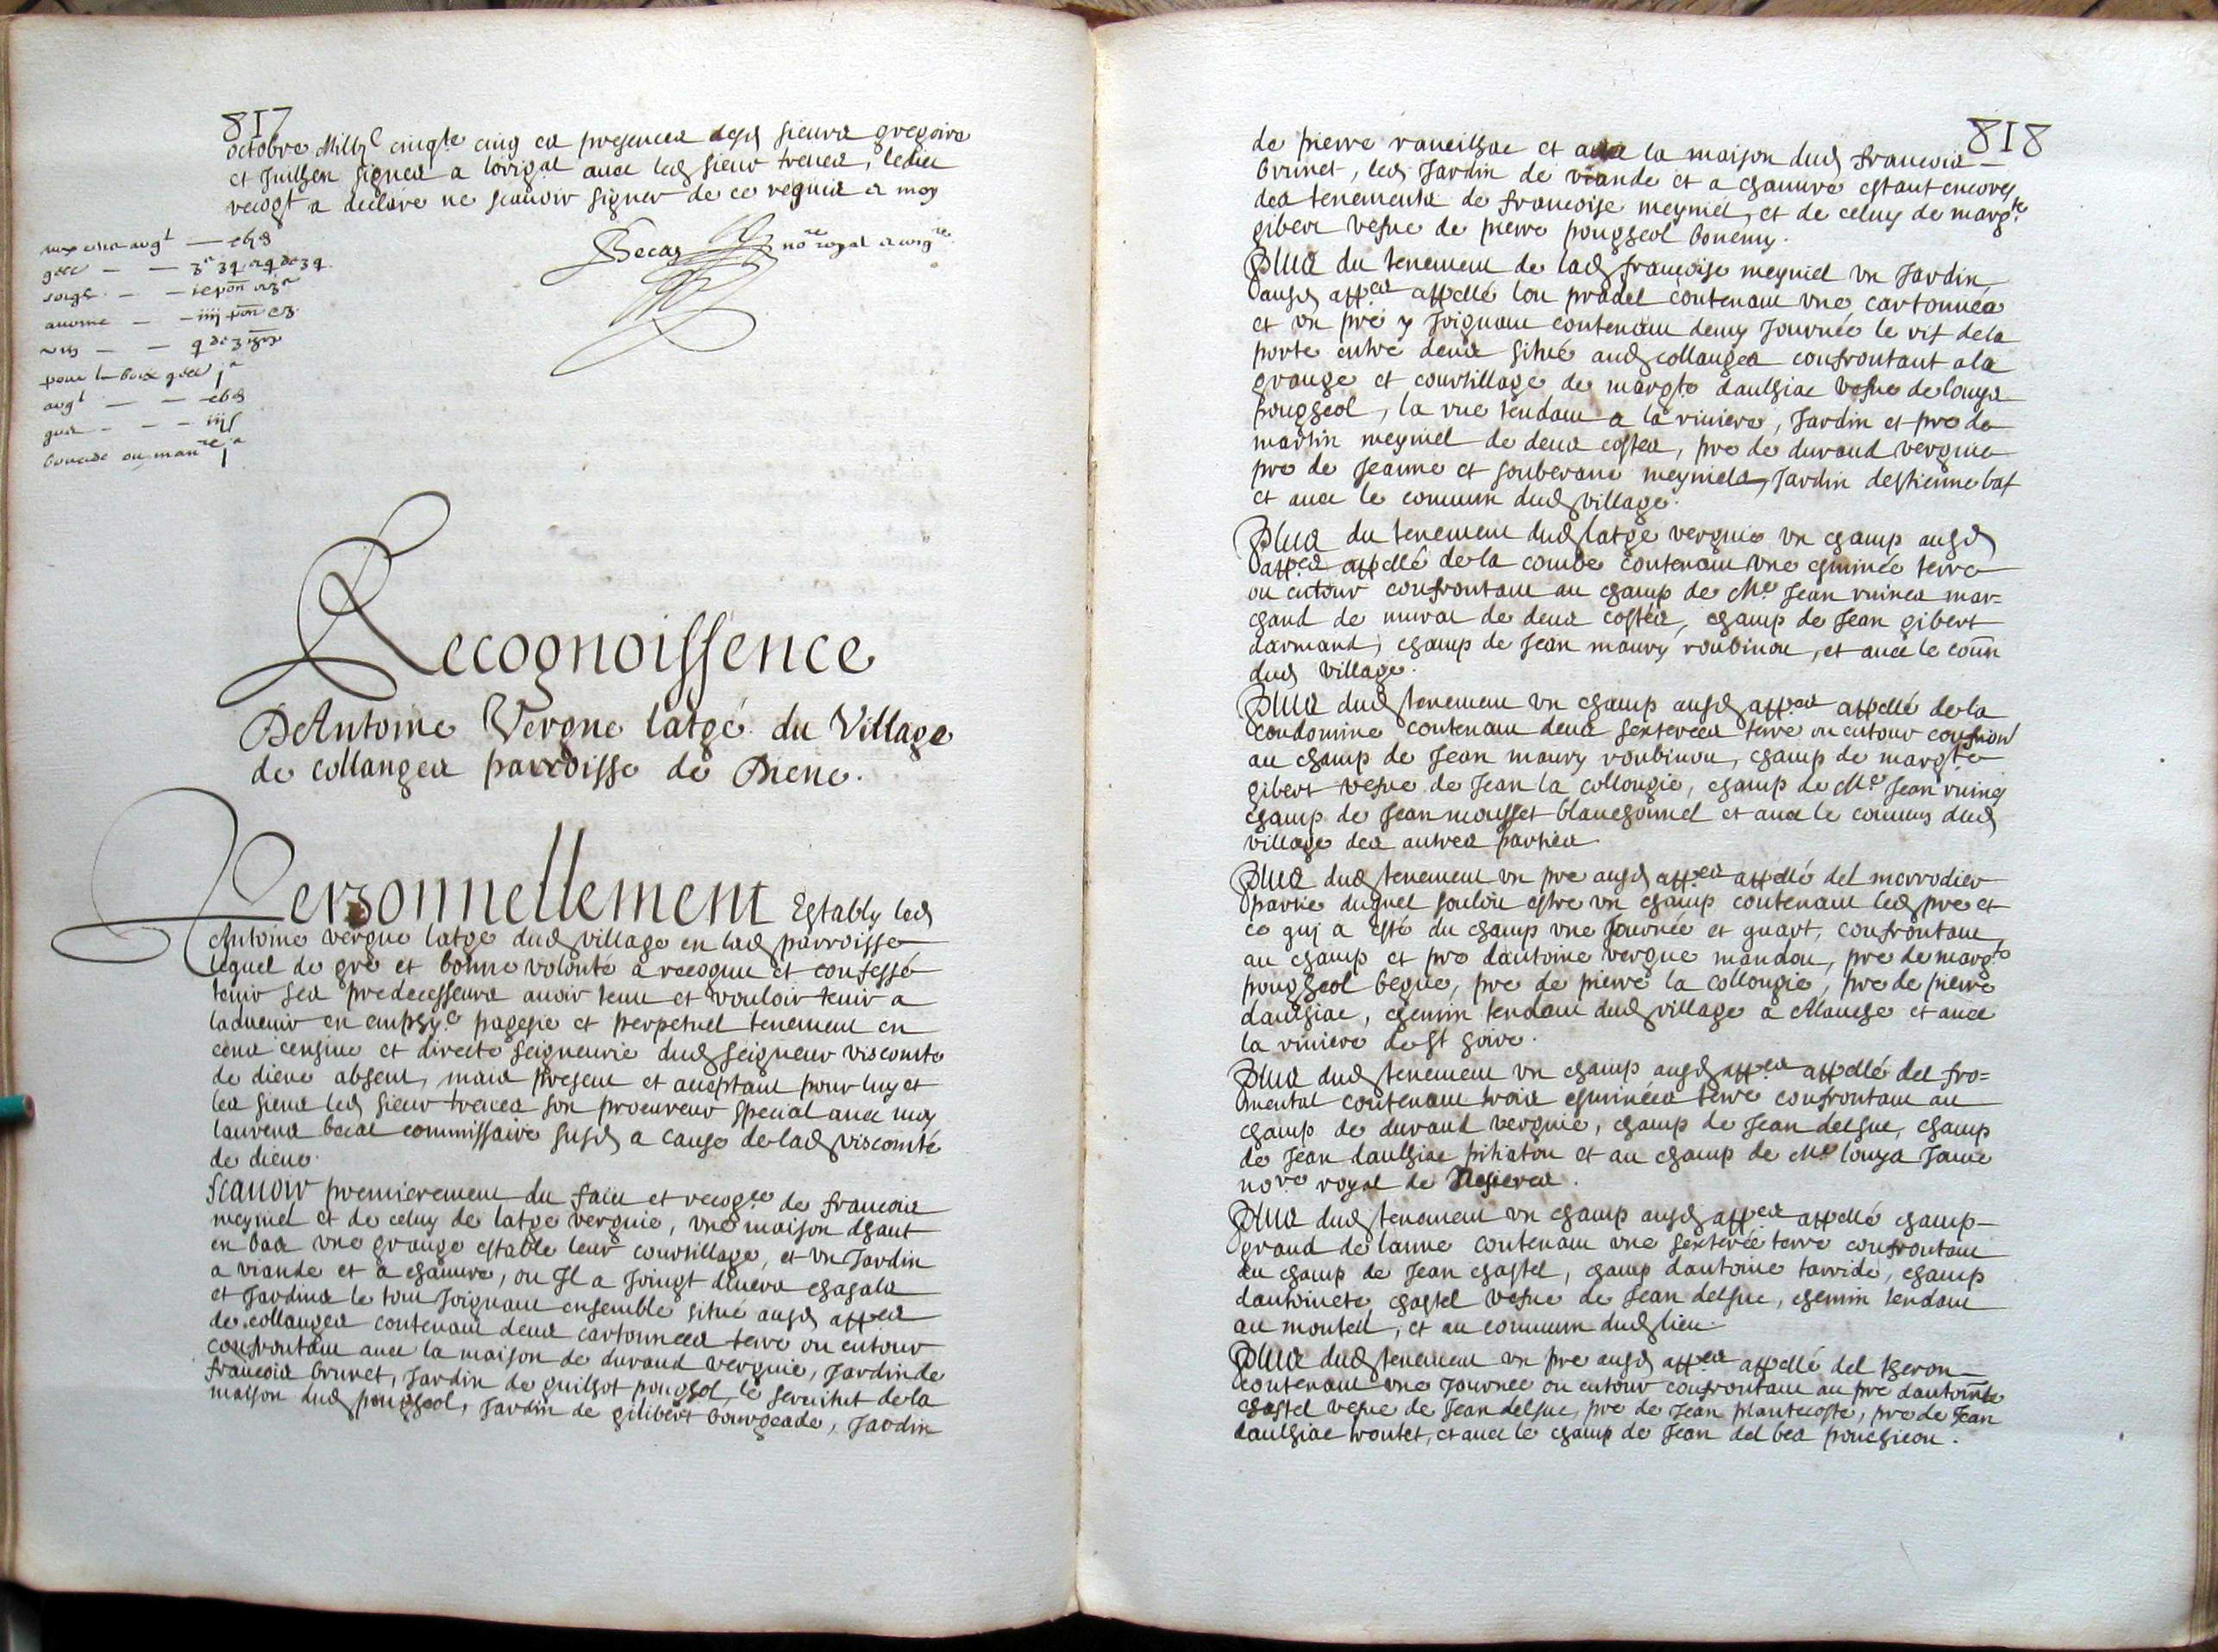 817
octobre Mil vjc cinqte cinq ez presences desd sieurs gregoire
et Juilhen signes a lorigal avec led sieur treves, ledict
recogt a declaré ne scauoir signer de ce requis et moy
Becas nore royal a mrgre
argt
gele
soigle
auoine
pour le boix gele ja
argt
bouade ou manre ja
Recognoissence
DeAntoine Vergne latgé du Village
de collanges parroisse de Diene.
Personnellement Establÿ led
Antoine vergne latge dud village en lad parroisse
lequel de gré et bonne volonté a recognu et confessé
tenir ses predecesseurs auoir tenu et vouloir tenir a
laduenir en emphye pagesie et perpetuel tenement en
cens censiue et directe seigneurie dud seigneur viscomte
de diene absent, mais present et acceptant pour luy et
les siens led sieur treves son procureur special auec moy
laurens becat commissaire susd a cause de lad viscomté
de diene.
Scauoir premierement du faict et recogce de francois
meyniel et de celuy de latge vergnie, vne maison dhaut
en bas vne grange estable leur courtillage, et vn Jardin
a viande et a chanure, ou Jl a Joingt divers chasals
et Jardins le tout Joignant ensemble situé ausd appes
de collanges contenant deux cartonnees terre ou entour
confrontant auec la maison de durand vergnie, Jardin de
francois brunet, Jardin de guilhot pougheol, le seruitut de la
maison dud pougheol, Jardin de gilibert bourgeade, Jardin
818
de pierre raneilhac et auec la maison dud francois
brunet, led Jardin de viande et a chanure estant encores
des tenements de francoise meyniel, et de celuy de margte
gibert vefue de pierre pougheol bonemy.
Plus du tenement de lad francoise meyniel vn Jardin
ausd appes appellé lou pradel contenant vne cartonnee
et vn pré y Joignant contenant demy Journée le vif de la
porte entre deux situé aud collanges confrontant a la
grange et courtillage de margte daulhac vefue de louys
pougheol, la rue tendant a la riuiere, Jardin et pre de
martin meyniel de deux costes, pre de durand vergnie
pre de Jeanne et souberane meyniels, Jardin destienne bat
et auec le commun dud village.
Plus du tenement dud latge vergnie vn champ ausd
appes appellé de la combe contenant vne eminée terre
ou entour confrontant au champ de Me Jean ruines mar=
chand de murat de deux costés, champ de Jean gibert
darmand, champ de Jean maury roubinou, et auec le comn
dud village.
Plus dud tenement vn champ ausd appes appellé de la
condomine contenant deux sexterees terre ou entour confront
au champ de Jean maury roubinou, champ de margte
gibert vefue de Jean la collongie, champ de Me Jean ruines
champ de Jean mousset blanchonnel et auec le commun dud
village des autres parties.
Plus dud tenement vn pre ausd appes appellé del marrodier
partie duquel souloit estre vn champ contenant led pre et
ce qui a esté du champ vne Journée et quart, confrontant
au champ et pre dantoine vergne mandou, pre de margte
pougheol begue, pre de pierre la collongie, pre de pierre
daulhac, chemin tendant dud village a Alanche et auec
la riuiere de st goire.
Plus dud tenement vn champ ausd appes appellé del fro=
mental contenant trois eminées terre confrontant au
champ de durand vergnie, champ de Jean delsuc, champ
de Jean daulhac pitiatou et au champ de Me louys Jame
nore royal de
Plus dud tenement vn champ ausd appes appellé champ
grand de lanne contenant vne sexterée terre confrontant
au champ de Jean chastel, champ dantoine tarride, champ
dantoinete chastel vefue de Jean delsuc, chemin tendant
au monteil, et au commun dud lieu.
Plus dud tenement vn pre ausd appes appellé del theron
contenant vne Journee ou entour confrontant au pre dantointe
chastel vefue de Jean delsuc, pre de Jean plantecoste, pre de Jean
daulhac toutet, et auec le champ de Jean del bes pouchicou.